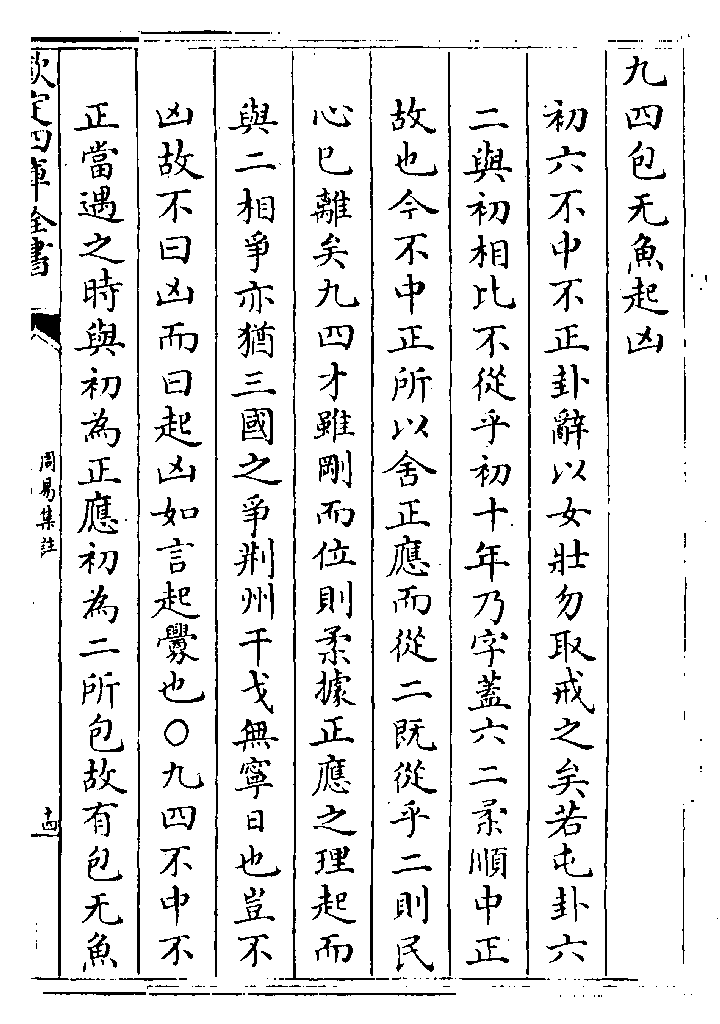 九四包无魚起凶
初六不中不正卦辭以女壯勿取戒之矣若屯卦六
二與初相比不從乎初十年乃字蓋六二柔順中正
故也今不中正所以舍正應而從二既從乎二則民
心已離矣九四才雖剛而位則柔據正應之理起而
與二相爭亦猶三國之爭荆州干戈無寧日也豈不
凶故不曰凶而曰起凶如言起釁也○九四不中不
正當遇之時與初為正應初為二所包故有包无魚
欽定四庫全書
周易集註
十四